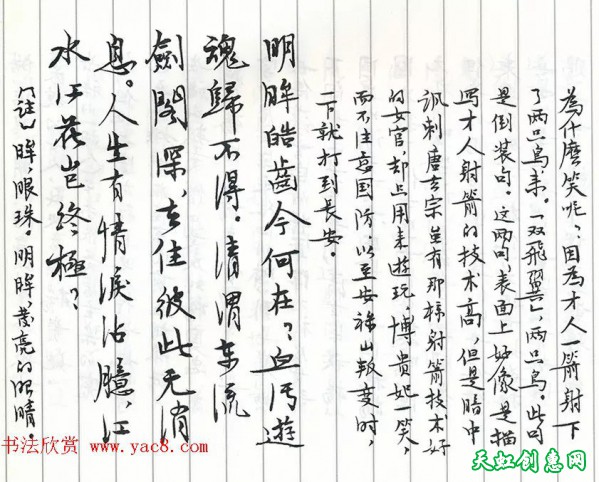 為什麼笑呢？因為才人一箭射下
了兩只鳥來。“一双飛翼”，兩只鳥。此句
是倒装句。这兩句，表面上好像是描
写才人射箭的技术高，但是暗中
讽刺唐玄宗虽有那样射箭技术好
的女官，却只用来遊玩，博贵妃一笑，
而不注意国防，以至安禄山叛变时，
一下就打到長安。
明眸皓齒今何在？血污遊
魂歸不得。清渭东流
劍閣深，去住彼此无消
息。人生有情淚沾臆，江
水江花岂终極？
【注】眸，眼珠。明眸，黑亮的眼睛。
书法欣赏 www.yac8.com
天虹创意网